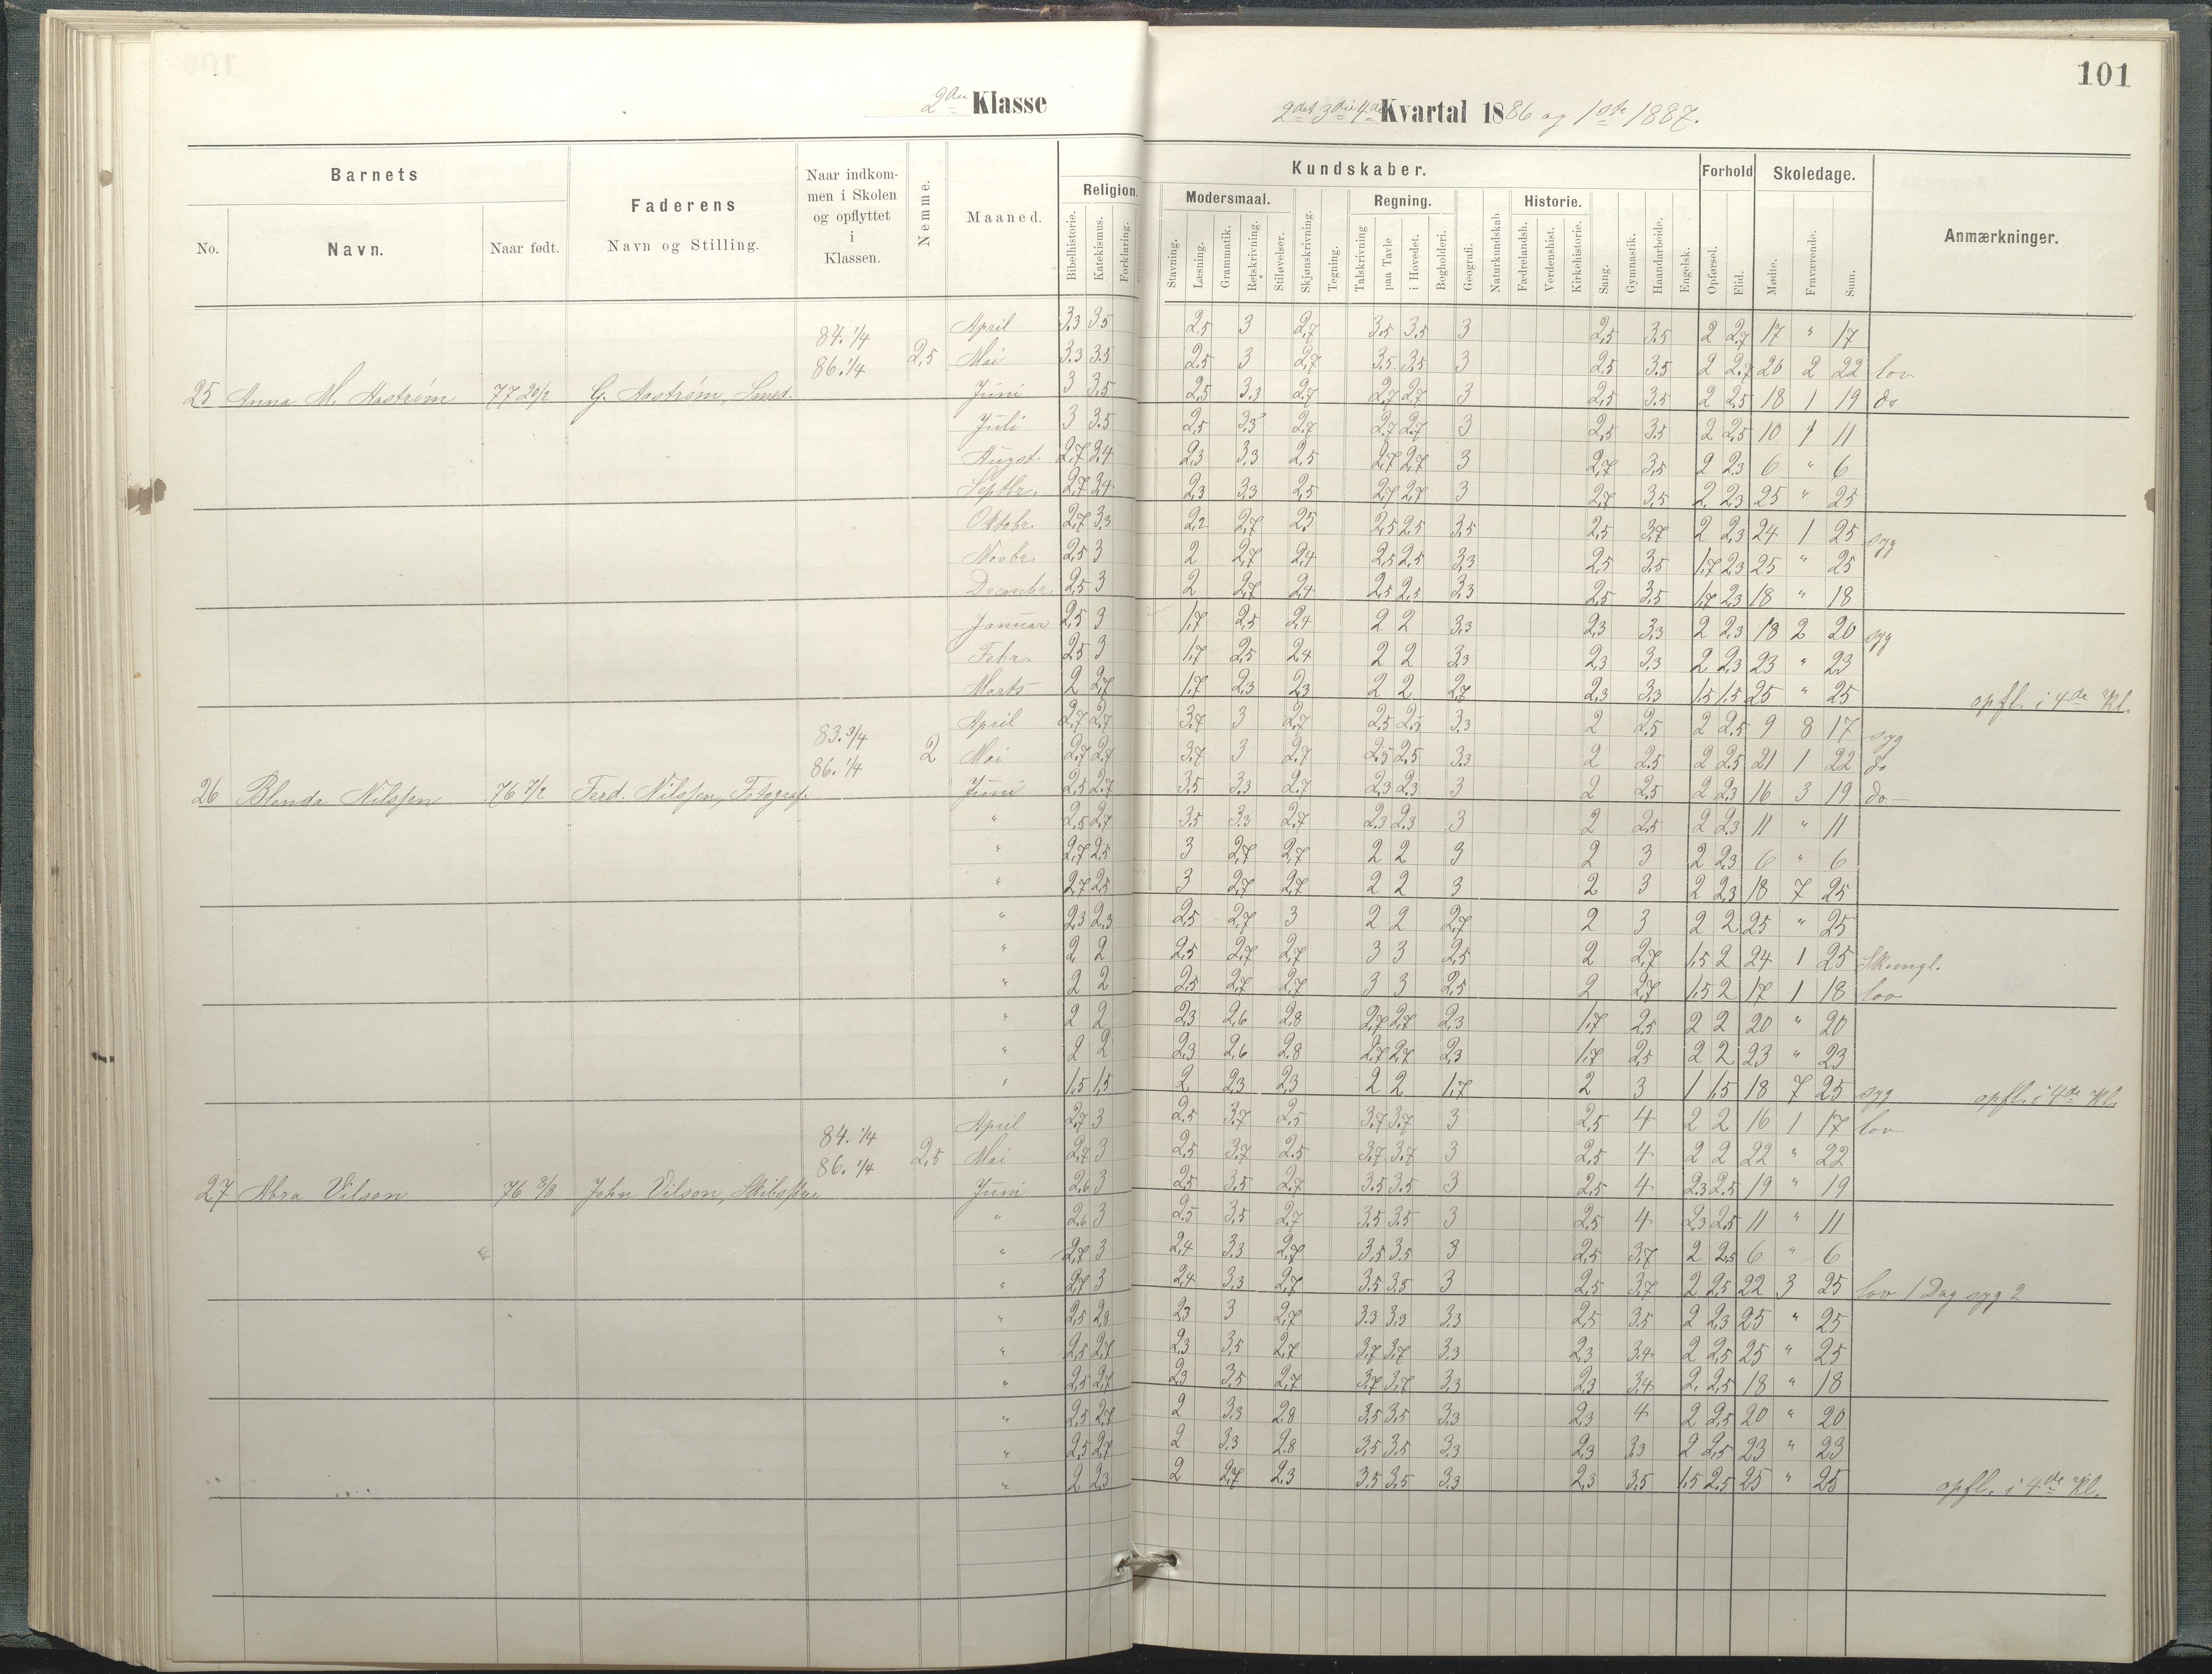 101
2den Klasse
2det 3die 4de Kvartal 1886 og 1ste 1887.
Barnets
Faderens
Naar indkommen i Skolen og opflyttet i Klassen.
Nemme.
Maaned.
Religion.
Kundskaber.
Forhold
Skoledage.
Anmærkninger.
No.
Navn.
Naar født.
Navn og Stilling.
Bibelhistorie.
Katekismus.
Forklaring.
Modersmaal.
Stavning.
Læsning.
Grammatik.
Retskrivning.
Stiløvelser.
Skjønskrivning.
Tegning.
Regning.
Talskrivning
paa Tavle
i Hovedet.
Bogholderi.
Geografi.
Naturkundskab.
Historie.
Fædrelandsh.
Verdenshist.
Kirkehistorie.
Sang.
Gymnastik.
Haandarbeide.
Engelsk.
Opførsel.
Flid.
Mødte.
Fraværende.
Sum.
84. 1/4
86. 1/4
2,5
25 Anna M. Aastrøm 77 20/2 G. Aastrøm, Smed.
April 3.3 3.5 2.5 3 2,7 3.5 3.5 3 2,5 3.5 2 2,7 17 " 17
Mai 3.3 3.5 2.5 3 2,7 3.5 3.5 3 2.5 3.5 2 2.7 20 2 22 lov
Juni 3 3.5 2,5 3.3 2.7 2,7 2,7 3 2,5 3.5 2 2.5 18 1 19 do
Juli 3 3.5 2,5 3,3 2.7 2.7 2.7 3 2,5 3.5 2 2.5 10 1 11
Augst. 2,7 3,4 2,3 3.3 2,5 2,7 2,7 3 2,7 3,5 2 2,3 6 " 6
Septbr. 2,7 3,4 2,3 3.3 2,5 2,7 2,7 3 2,7 3,5 2 2,3 25 " 25
Oktobr. 2,7 3,3 2,2 2,7 2,5 2,5 2,5 3,5 2,5 3,7 2 2,3 24 1 25 syg
Novbr. 2,5 3 2 2,7 2,4 2,5 2,5 3,3 2,5 3,5 1,7 2,3 25 " 25
Decembr. 2,5 3 2 2,7 2,4 2,5 2,5 3,3 2,5 3,5 1,7 2,3 18 " 18
Januar 2,5 3 1,7 2,5 2,4 2 2 3,3 2,3 3,3 2 2,3 18 2 20 syg
Febr. 2,5 3 1,7 2,5 2,4 2 2 3,3 2,3 3,3 2 2,3 23 " 23
Marts 2 2,7 1,7 2,3 2,3 2 2 2,7 2,3 3,3 1,5 1,5 25 " 25 opfl. i 4de Kl.
83. 3/4
86. 1/4
2
26 Blenda Nilssen 76 7/2 Ferd. Nilssen, Fotograf.
April 2,7 2,7 3,7 3 2,7 2,5 2,5 3,3 2 2,5 2 2.5 9 8 17 syg
Mai 2,7 2,7 3,7 3 2,7 2,5 2,5 3.3 2 2.5 2 2.5 21 1 22 do
Juni 2,5 2.7 3.5 3.3 2.7 2.3 2.3 3 2 2,5 2 2.3 16 3 19 do
" 2,5 2,7 3.5 3.3 2.7 2.3 2.3 3 2 2.5 2 2.3 11 " 11
" 2,7 2,5 3 2,7 2,7 2 2 3 2 3 2 2,3 6 " 6
" 2,7 2,5 3 2,7 2,7 2 2 3 2 3 2 2,3 18 7 25
" 2,3 2,3 2,5 2,7 3 2 2 2,7 2 3 2 2 25 " 25
" 2 2 2,5 2,7 2,7 3 3 2,5 2 2,7 1,5 2 24 1 25 Skomgl.
" 2 2 2,5 2,7 2,7 3 3 2,5 2 2,7 1,5 2 17 1 18 lov
" 2 2 2,3 2,6 2,8 2,7 2,7 2,3 1,7 2,5 2 2 20 " 20
" 2 2 2,3 2,6 2,8 2,7 2,7 2,3 1,7 2,5 2 2 23 " 23
" 1,5 1,5 2 2,3 2,3 2 2 1,7 2 3 1 1,5 18 7 25 syg opfl. i 4de Kl.
84. 1/4
86. 1/4
2,5
27 Abra Vilson 76 3/8 John Vilson,
April 2,7 3 2,5 3.7 2,5 3.7 3.7 3 2,5 4 2 2 16 1 17 lov
Mai 2,7 3 2,5 3,7 2.5 3,7 3,7 3 2,5 4 2 2 22 " 22
Juni 2,6 3 2,5 3,5 2,7 3.5 3.5 3 2,5 4 2,3 2,5 19 " 19
" 2,6 3 2,5 3,5 2,7 3.5 3.5 3 2,5 4 2,3 2,5 11 " 11
" 2,7 3 2,4 3.3 2,7 3.5 3.5 3 2,5 3,7 2 2,5 6 " 6
" 2,7 3 2,4 3.3 2,7 3.5 3,5 3 2,5 3,7 2 2,5 22 3 25 lov 1 Dag syg 2
" 2,5 2,8 2,3 3 2,7 3.3 3,3 3,3 2,5 3,5 2 2,3 25 " 25
" 2,5 2,7 2,3 3,5 2,7 3,7 3,7 3,3 2,3 3,4 2 2,5 25 " 25
" 2,5 2,7 2,3 3,5 2,7 3,7 3,7 3,3 2,3 3,4 2 2,5 18 " 18
" 2,5 2,7 2 3,3 2,8 3,5 3,5 3,3 2,3 4 2 2,5 20 " 20
" 2,5 2,7 2 3.3 2,8 3,5 3,5 3,3 2,3 3,3 2 2,5 23 " 23
" 2 2,3 2 2,7 2,3 3,5 3,5 3,3 2,3 3,5 1,5 2,5 25 " 25 opfl. i 4de Kl.